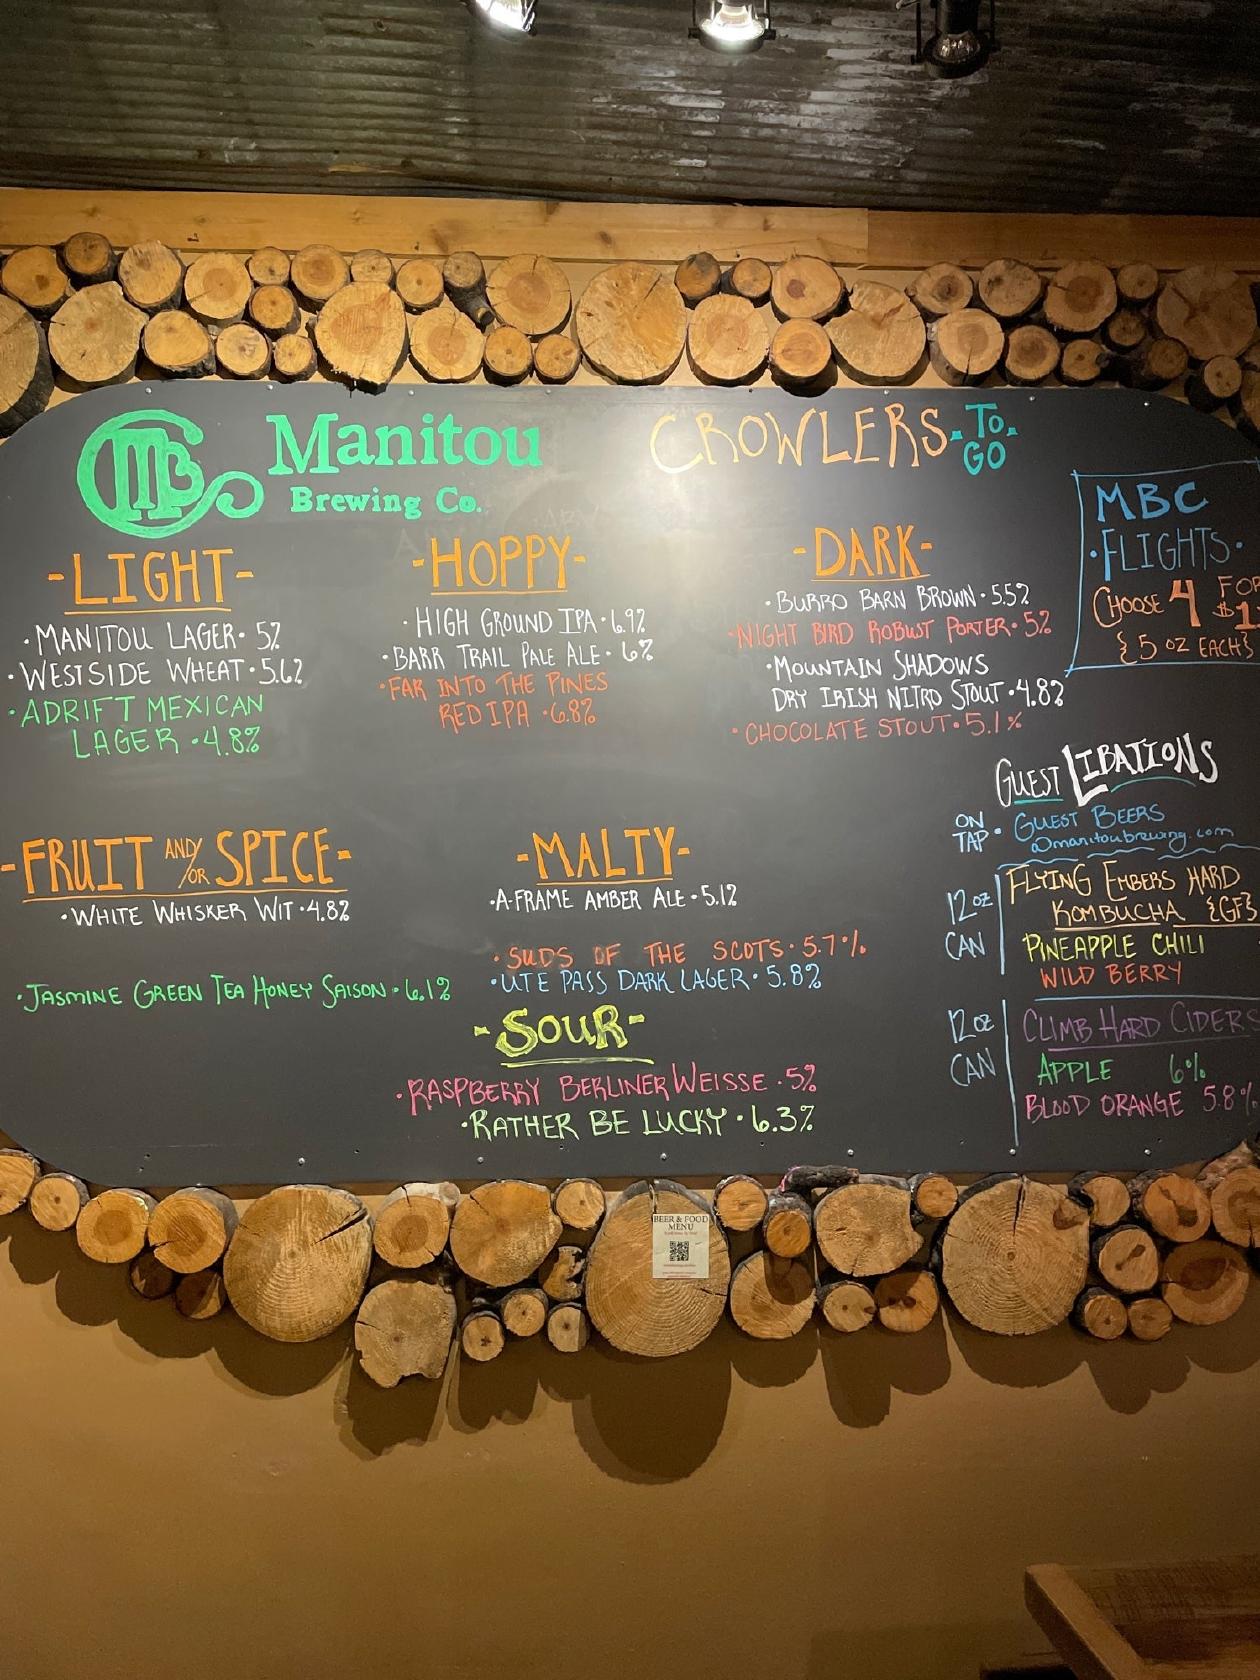 CMB Manitou
Brewing Co.
CROWLERS
-TO-
GO
-LIGHT-
• MANITOU LAGER • 5%
• WESTSIDE WHEAT • 5.6%
• ADRIFT MEXICAN
LAGER • 4.8%
-HOPPY-
• HIGH GROUND IPA • 6.9%
• BARR TRAIL PALE ALE • 6%
• FAR INTO THE PINES
RED IPA • 6.8%
-DARK-
• BURRO BARN BROWN • 5.5%
• NIGHT BIRD ROBUST PORTER • 5%
• MOUNTAIN SHADOWS
DRY IRISH NITRO STOUT • 4.8%
• CHOCOLATE STOUT • 5.1%
MBC
• FLIGHTS •
CHOOSE 4 FOR
{5 OZ EACH}
-FRUIT AND/OR SPICE-
• WHITE WHISKER WIT • 4.8%
• JASMINE GREEN TEA HONEY SAISON • 6.1%
-MALTY-
• A-FRAME AMBER ALE • 5.1%
• SUDS OF THE SCOTS • 5.7%
• UTE PASS DARK LAGER • 5.8%
-SOUR-
• RASPBERRY BERLINER WEISSE • 5%
• RATHER BE LUCKY • 6.3%
GUEST LIBATIONS
ON TAP • GUEST BEERS
@manitoubrewing.com
12 oz CAN
FLYING EMBERS HARD
KOMBUCHA {GF}
PINEAPPLE CHILI
WILD BERRY
12 oz CAN
CLIMB HARD CIDERS
APPLE 6%
BLOOD ORANGE 5.8%
BEER & FOOD
MENU